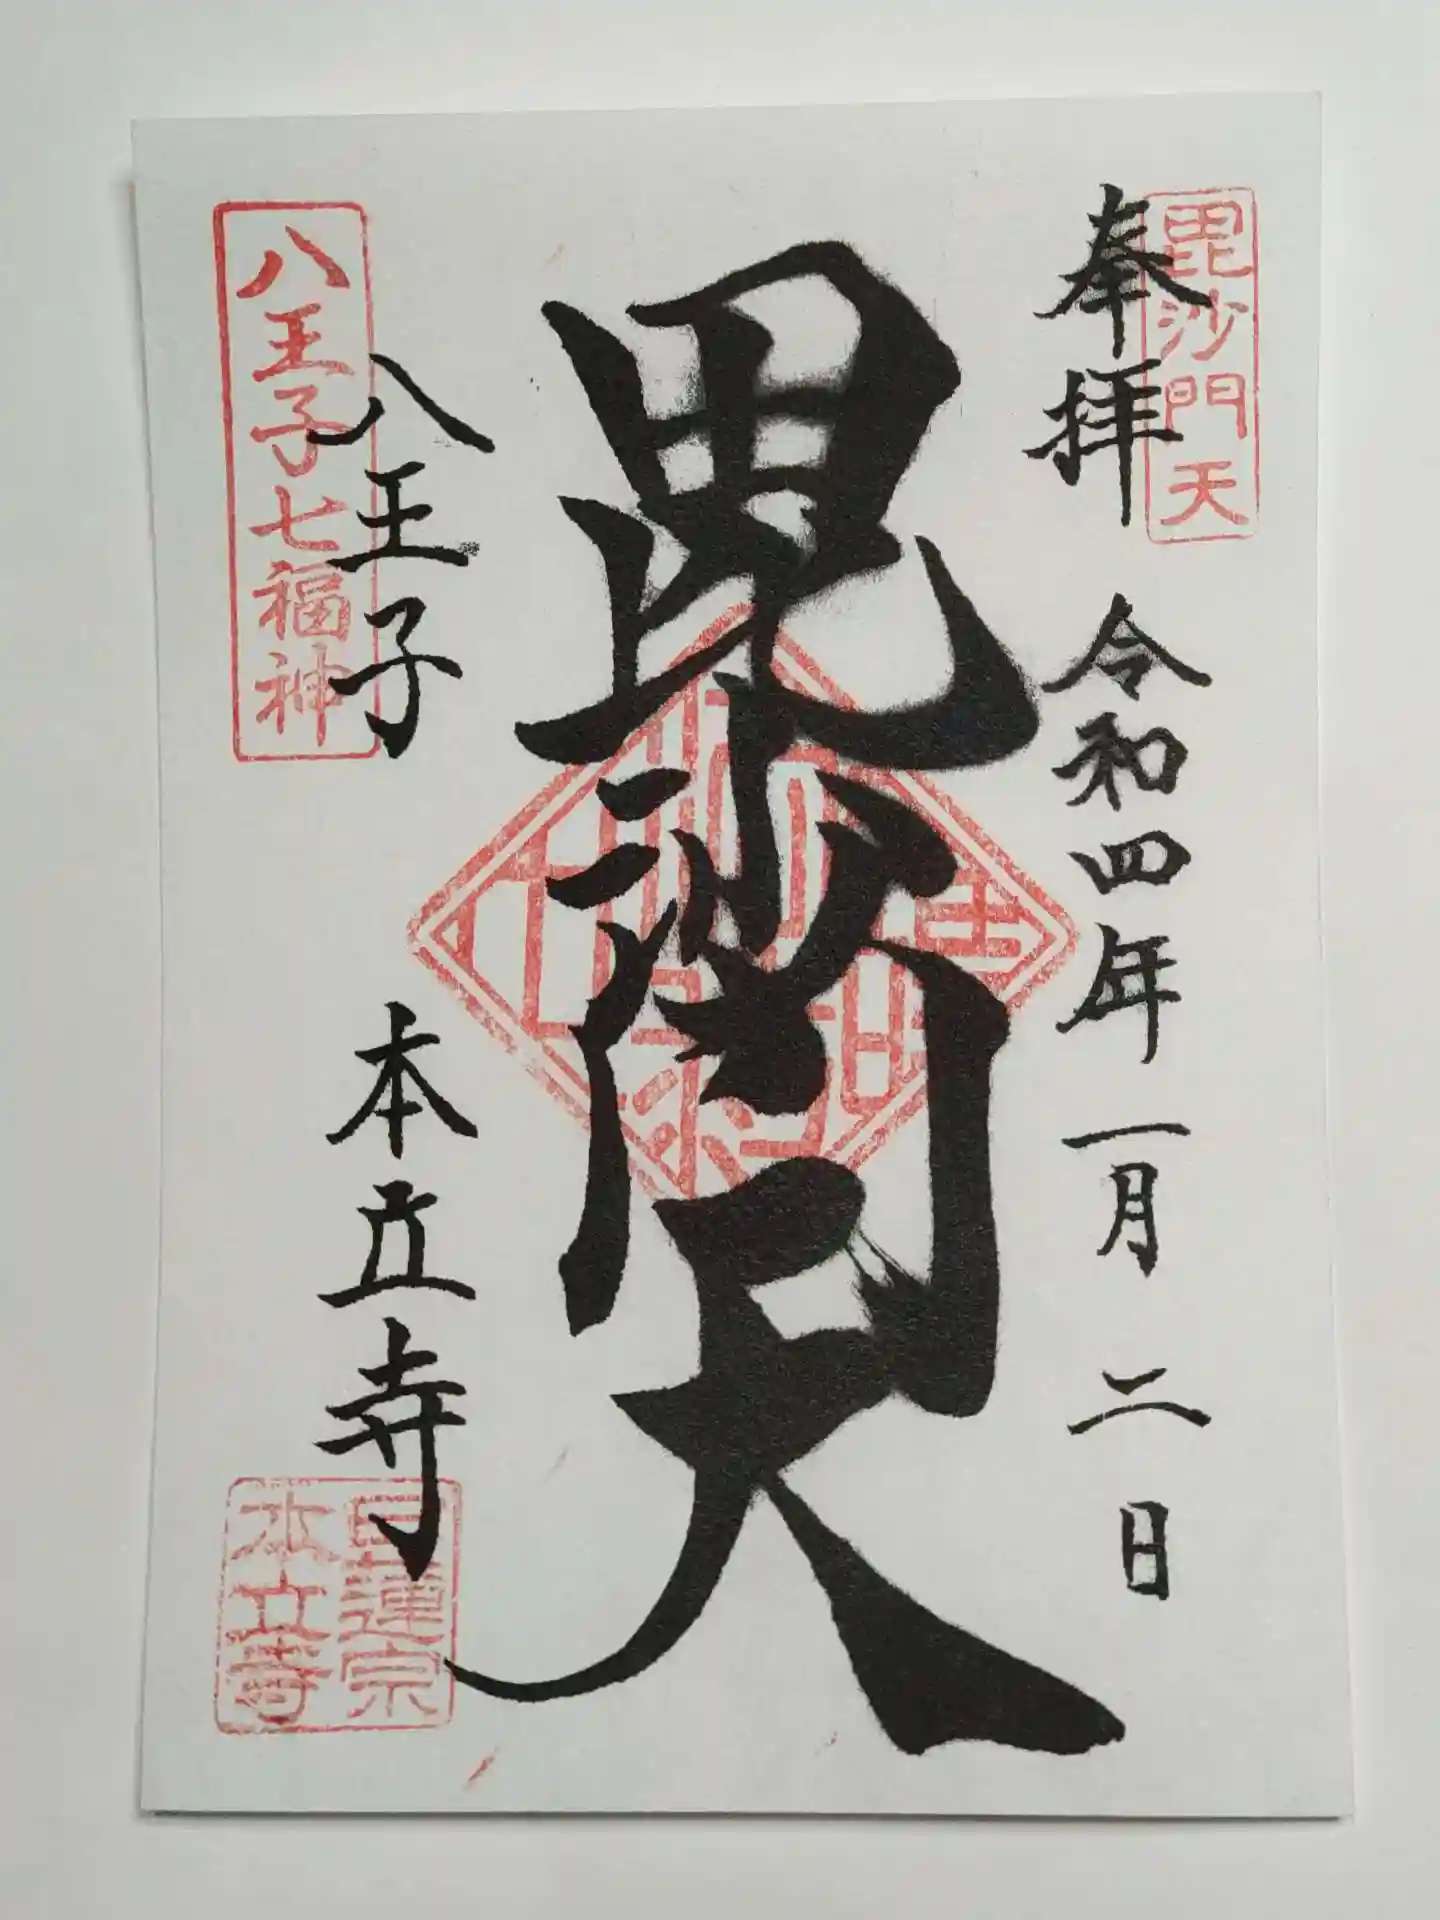 毘沙門天
奉拝
令和四年一月二日
毘沙門天
八王子七福神
八王子
本立寺
日蓮宗
本立寺